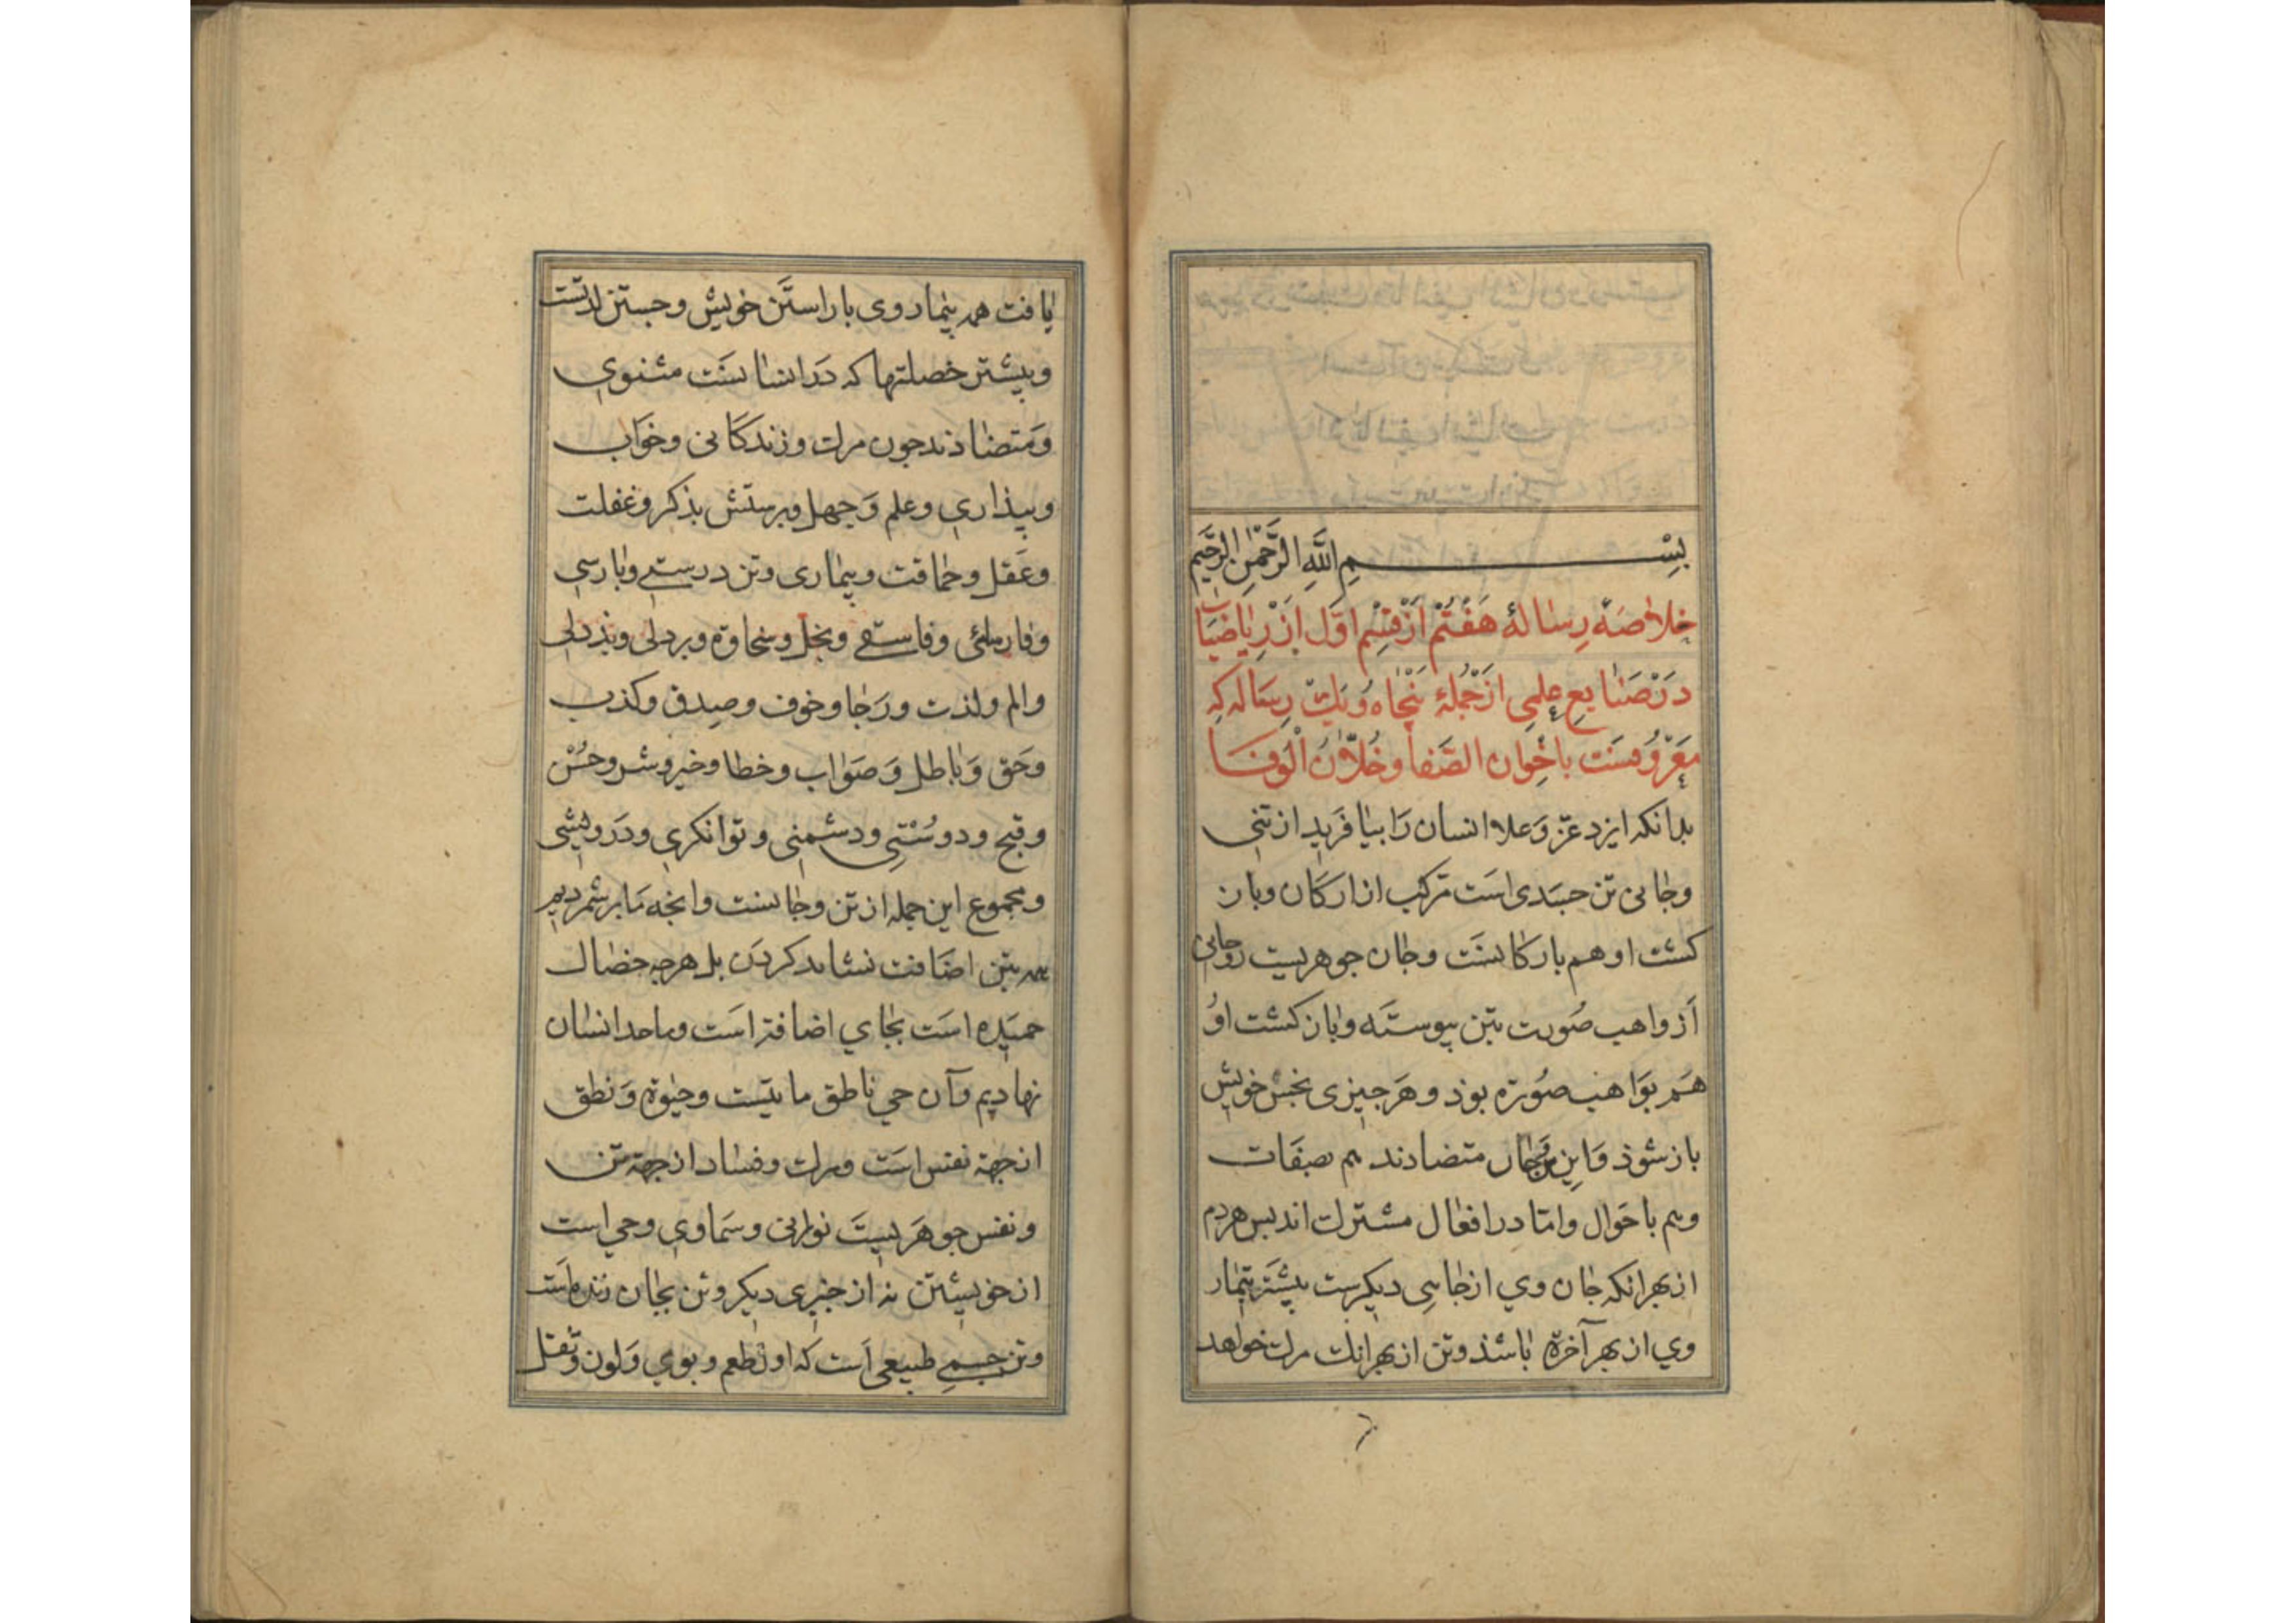 بِسْمِ اللَّهِ الرَّحْمٰنِ الرَّحِیَّمِ
خلاصَهٔ رِسٰالهٔ هَفْتُم اَزْقِسِم اوّل اَزْ رِیٰاضیَات
دَرْصَنٰایعِ علِمِی ازجُملهٔ پَنْجاه وُیَكْ رِسَاله کِه
مَعْروُفسَت باخِوان الصَّفا وخُلّان الْوَفا
بدانکه ایزد عزّ وَعلا انسان رَا بیٰافَرید از تنی
وجٰانی تن جسَدی اسَت مَرکب از ارکَان وباز
کشت او هم بارکانسَت وجٰان جوهریست روحانی
اَز واهب صُورت بتن پیوستَه وباز کشت اوُ
هَم بوَاهب صُورة بوَذ و هَرجیزی بجنس خویش
باز شوذ وَاین متضادند هم بصفَات
وهم باحَوال وامّا در افعٰال مشترك اند پس هردم
از بهرانکه جٰان وي از جٰایِی دیکرست بیشتَر تیمٰار
وي از بهر آخرة بٰاشذ وتن از بهرانك مرك خواهد
یافت همه تیمٰار وی باراستَن خویش وجستن لذتست
وبیشتر خصلتها که دَر انسٰانسَت مثنوي
وَمتضٰاذند جون مرك وزندکَانی وخوَاب
وبیذاري وعلم وَجهل وبرستش بذکر وغفلت
وعَقل وحمٰاقت وبیمٰاری وتن درستے وبٰارسیِ
ونٰابارسٰئی وفاسقے وبخل وسخاوة وبردلی وبذدلی
والم ولذت ورَجٰا وخوف وصدق وکذب
وحَق وَبٰاطل وَصوَاب وخطا وخیر وشر وحُسْن
وقبح ودوسْتیِ ودشمنی وتوانکري ودَرویشی
ومجموع این جمله از تن وجٰانست وانجه مَا برشمردیم
همه بتن اضَافت نشاید کردَن بل هرجه خصٰال
حمیَده اسَت بجٰاي اضافة اسَت وماحد انسٰان
نهادیم وآن حي ناطق مایتَست وحیٰوة وَنطق
از جهة نفس اسَت ومرك وفسٰاد از جهة تن
ونفس جوهَریستَ نورانی وسَماوي وحي است
از خویشتن نه از جیزی دیکر وتن بجٰان زنده است
وتن جسمے طبیعی اَست که او رٰا طعم وبوي وَلون وثقل